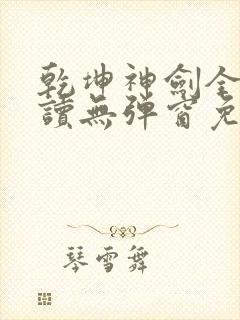 乾坤神劍全
讀無彈窗免
琴雪舞